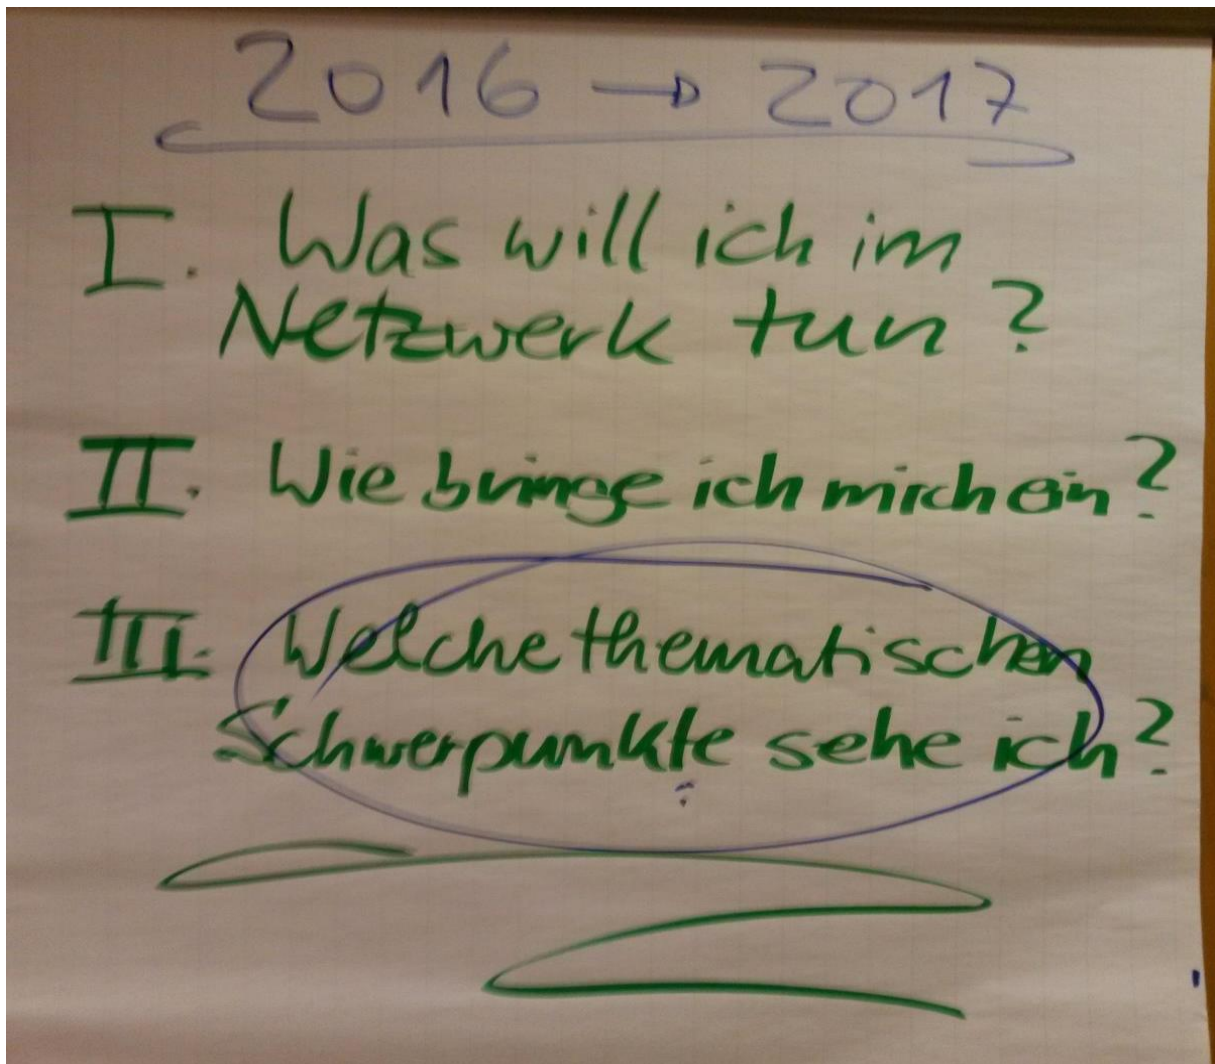 2016 → 2017
I. Was will ich im
Netzwerk tun?
II. Wie bringe ich mich ein?
III. Welche thematischen
Schwerpunkte sehe ich?